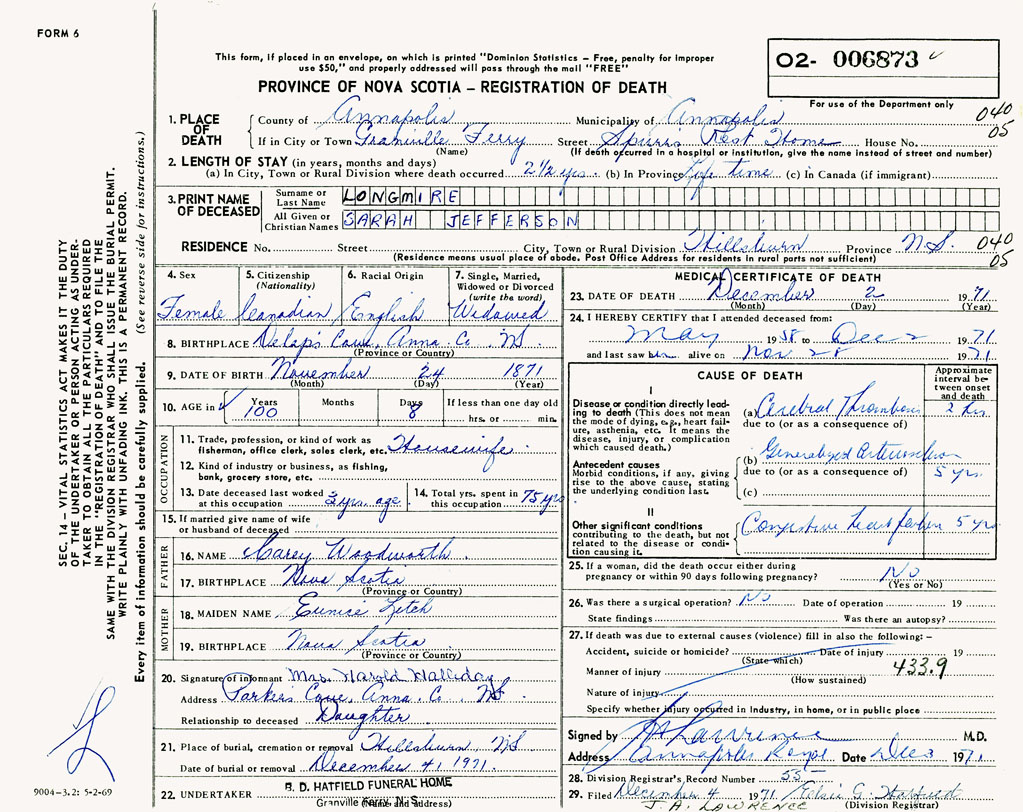 FORM 6
This form, if placed in an envelope, on which is printed "Dominion Statistics – Free, penalty for improper
use $50," and properly addressed will pass through the mail "FREE"
02- 006873
PROVINCE OF NOVA SCOTIA – REGISTRATION OF DEATH
For use of the Department only
1. PLACE OF DEATH
County of Annapolis Municipality of Annapolis 040
If in City or Town Granville Ferry Street Spurrs Rest Home House No. 05
(Name) (If death occurred in a hospital or institution, give the name instead of street and number)
2. LENGTH OF STAY (in years, months and days)
(a) In City, Town or Rural Division where death occurred 2 1/2 yrs. (b) In Province Life time (c) In Canada (if immigrant)
3. PRINT NAME OF DECEASED
Surname or Last Name LONGMIRE
All Given or Christian Names SARAH JEFFERSON
RESIDENCE No. Street City, Town or Rural Division Hillsburn Province N.S. 040
05
(Residence means usual place of abode. Post Office Address for residents in rural parts not sufficient)
4. Sex
Female
5. Citizenship
(Nationality)
Canadian
6. Racial Origin
English
7. Single, Married,
Widowed or Divorced
(write the word)
Widowed
8. BIRTHPLACE Delaps Cove, Anna. Co. N.S.
(Province or Country)
9. DATE OF BIRTH November 24 1871
(Month) (Day) (Year)
10. AGE in Years Months Days If less than one day old
100 8 hrs. or min.
OCCUPATION
11. Trade, profession, or kind of work as
fisherman, office clerk, sales clerk, etc. Housewife
12. Kind of industry or business, as fishing,
bank, grocery store, etc.
13. Date deceased last worked
at this occupation 3 yrs. ago
14. Total yrs. spent in
this occupation 75 yrs
15. If married give name of wife
or husband of deceased
FATHER
16. NAME Carey Woodworth
17. BIRTHPLACE Nova Scotia
(Province or Country)
MOTHER
18. MAIDEN NAME Eunice Letch
19. BIRTHPLACE Nova Scotia
(Province or Country)
20. Signature of informant Mrs. Harold Halliday
Address Parkers Cove, Anna. Co. N.S.
Relationship to deceased Daughter
21. Place of burial, cremation or removal Hillsburn, N.S.
Date of burial or removal December 4, 1971.
22. UNDERTAKER B. D. HATFIELD FUNERAL HOME
Granville Ferry, N. S.
(Name and address)
MEDICAL CERTIFICATE OF DEATH
23. DATE OF DEATH December 2 1971
(Month) (Day) (Year)
24. I HEREBY CERTIFY that I attended deceased from:
May 1958 to Dec 2 1971
and last saw her alive on Nov 28 1971
CAUSE OF DEATH
Approximate
interval be-
tween onset
and death
I
Disease or condition directly lead-
ing to death (This does not mean
the mode of dying, e.g., heart fail-
ure, asthenia, etc. It means the
disease, injury, or complication
which caused death.)
(a) Cerebral Thrombosis 2 hrs.
due to (or as a consequence of)
Antecedent causes
Morbid conditions, if any, giving
rise to the above cause, stating
the underlying condition last.
(b) Generalized
due to (or as a consequence of) 5 yrs.
(c)
II
Other significant conditions
contributing to the death, but not
related to the disease or condi-
tion causing it.
Congestive heart failure 5 yrs
25. If a woman, did the death occur either during
pregnancy or within 90 days following pregnancy? No
(Yes or No)
26. Was there a surgical operation? No Date of operation 19
State findings Was there an autopsy?
27. If death was due to external causes (violence) fill in also the following: –
Accident, suicide or homicide? Date of injury 19
(State which)
Manner of injury 433.9
(How sustained)
Nature of injury
Specify whether injury occurred in Industry, in home, or in public place
Signed by Lawrence M.D.
Address Annapolis Royal Date Dec 3 1971
28. Division Registrar's Record Number 55
29. Filed December 4 1971
J. A. LAWRENCE (Division Registrar)
SEC. 14 – VITAL STATISTICS ACT MAKES IT THE DUTY
OF THE UNDERTAKER OR PERSON ACTING AS UNDER-
TAKER TO OBTAIN ALL THE PARTICULARS REQUIRED
IN THE "REGISTRATION OF DEATH" AND TO FILE THE
SAME WITH THE DIVISION REGISTRAR WHO SHALL ISSUE THE BURIAL PERMIT.
WRITE PLAINLY WITH UNFADING INK. THIS IS A PERMANENT RECORD.
Every item of information should be carefully supplied. (See reverse side for instructions.)
9004-3.2: 5-2-69